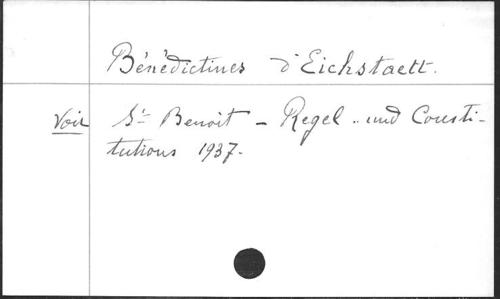 Bénédictines d'Eichstaett.
Voir St Benoit - Regel .. und Consti-
tutions 1937.